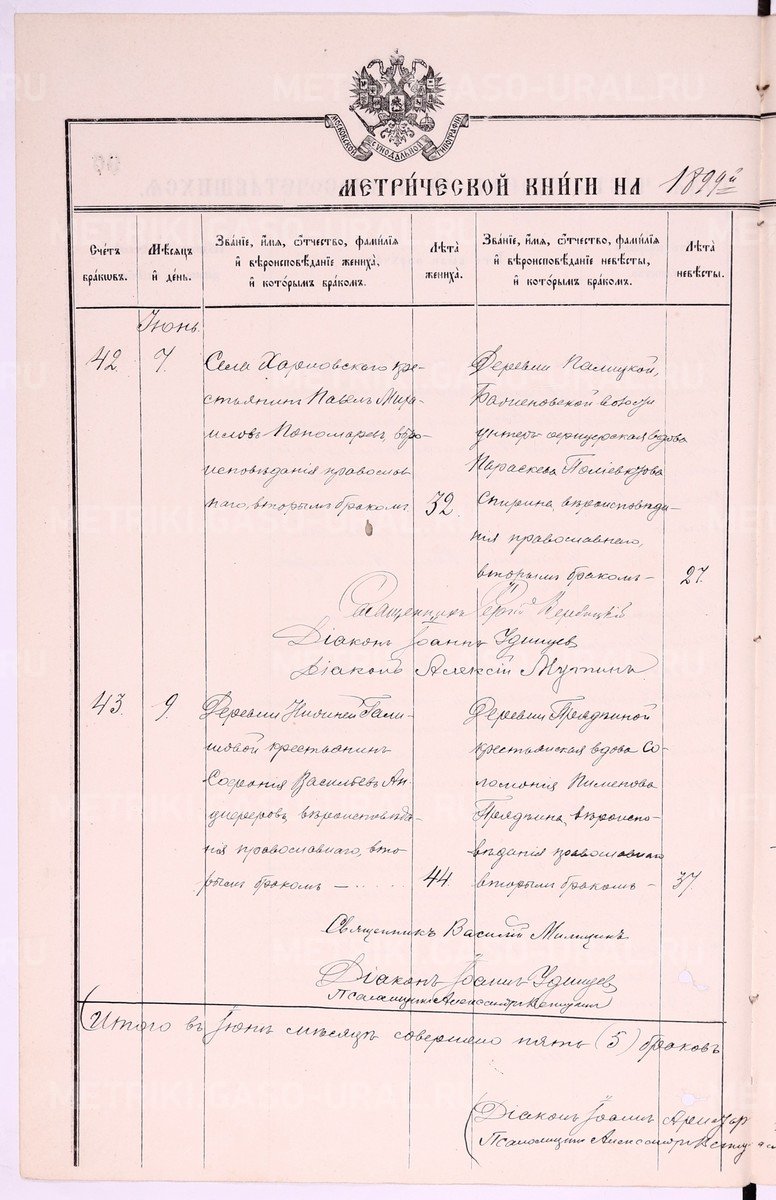 МОСКОВСКОЙ СѴНОДАЛЬНОЙ ТИПОГРАФІИ
МЕТРИ́ЧЕСКОЙ КНИ́ГИ НА 1899й
Сче́тъ бра́кѡвъ.
Мѣ́сяцъ и҆ де́нь.
Зва́нїе, и҆́мѧ, ѻ҆́тчество, фами́лїѧ и҆ вѣроисповѣ́данїе жениха̀, и҆ кото́рымъ бра́комъ.
Лѣ́та жениха̀.
Зва́нїе, и҆́мѧ, ѻ҆́тчество, фами́лїѧ и҆ вѣроисповѣ́данїе невѣ́сты, и҆ кото́рымъ бра́комъ.
Лѣ́та невѣ́сты.
Іюнь.
42. 7.
Села Харловскаго кре-
стьянинъ Павелъ Миха-
иловъ Пономаревъ, вѣро-
исповѣданія православ-
наго, вторымъ бракомъ
32.
Деревни
волости
унтеръ офицерская вдова
Параскева
Спирина, вѣроисповѣда-
нія православнаго,
вторымъ бракомъ –
27.
Священникъ Сергій
Діаконъ Іоаннъ Удинцев
Діаконъ Алексій
43. 9.
Деревни Нижней
крестьянинъ
Софронія Васильевъ Ан-
циферовъ, вѣроисповѣда-
нія православнаго, вто-
рымъ бракомъ – .....
44.
Деревни
крестьянская вдова Со-
ломонія Пименова
вѣроиспо-
вѣданія православнаго
вторымъ бракомъ –
37.
Священникъ Василій
Діаконъ Іоаннъ Удинцев
Псаломщикъ Александръ
Итого въ Іюнѣ мѣсяцѣ совершено пять (5) браковъ
Діаконъ Іоаннъ
Псаломщикъ Александръ
METRIKI.GASO-URAL.RU